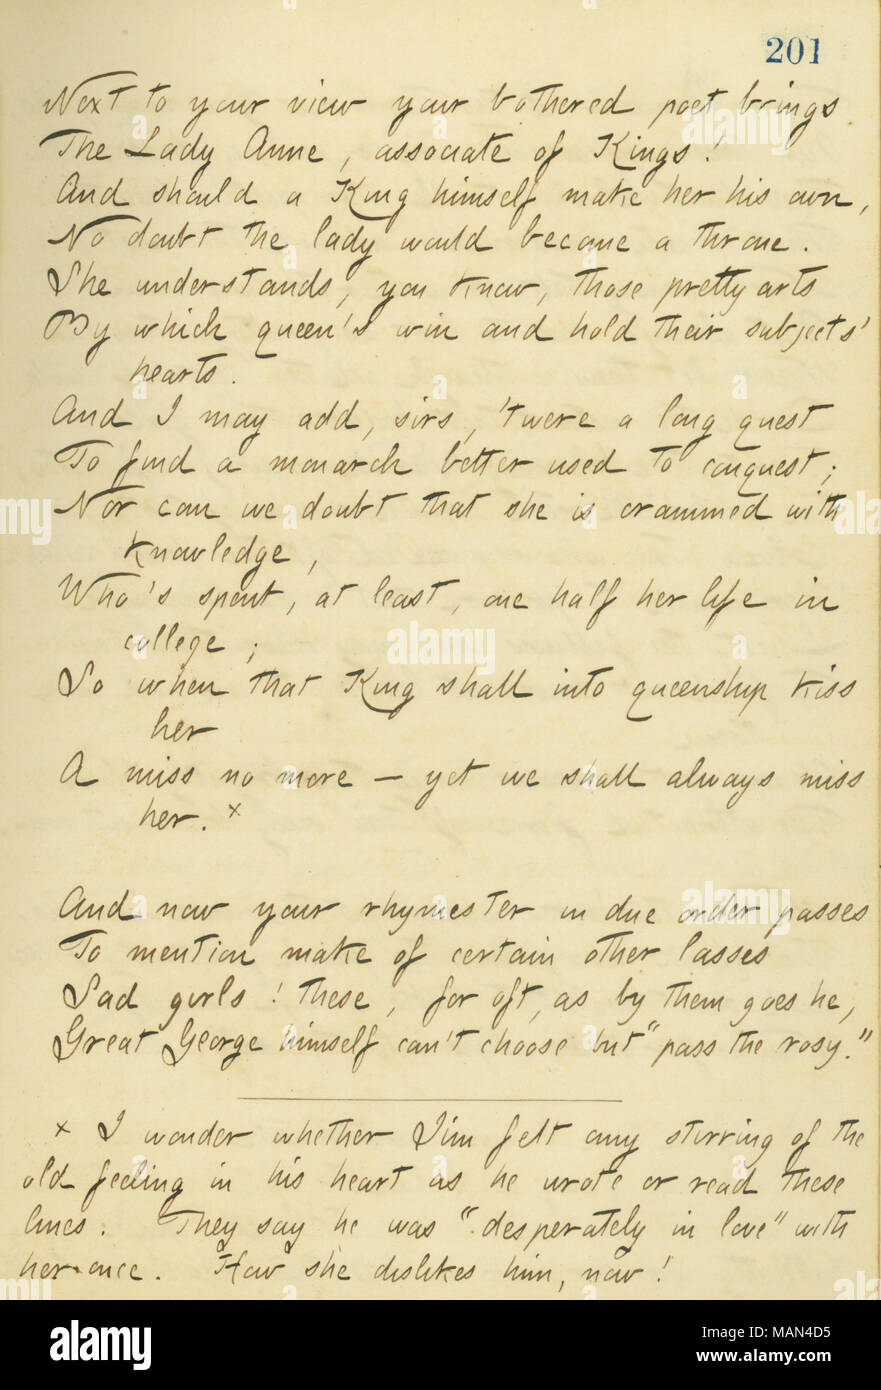 201
Next to your view your bothered poet brings
The Lady Anne, associate of Kings!
And should a King himself make her his own,
No doubt the lady would become a throne.
She understands, you know, those pretty arts
By which queen's win and hold their subjects'
hearts.
And I may add, sirs, 'twere a long quest
To find a monarch better used to conquest;
Nor can we doubt that she is crammed with
knowledge,
Who's spent, at least, one half her life in
college;
So when that King shall into queenship kiss
her
A miss no more — yet we shall always miss
her. x
And now your rhymester in due order passes
To mention make of certain other lasses
Sad girls! these, for oft, as by them goes he,
Great George himself can't choose but "pass the rosy."
x I wonder whether Jim felt any stirring of the
old feeling in his heart as he wrote or read these
lines. They say he was "desperately in love" with
her once. How she dislikes him, now!
alamy
Image ID: MAN4D5
www.alamy.com